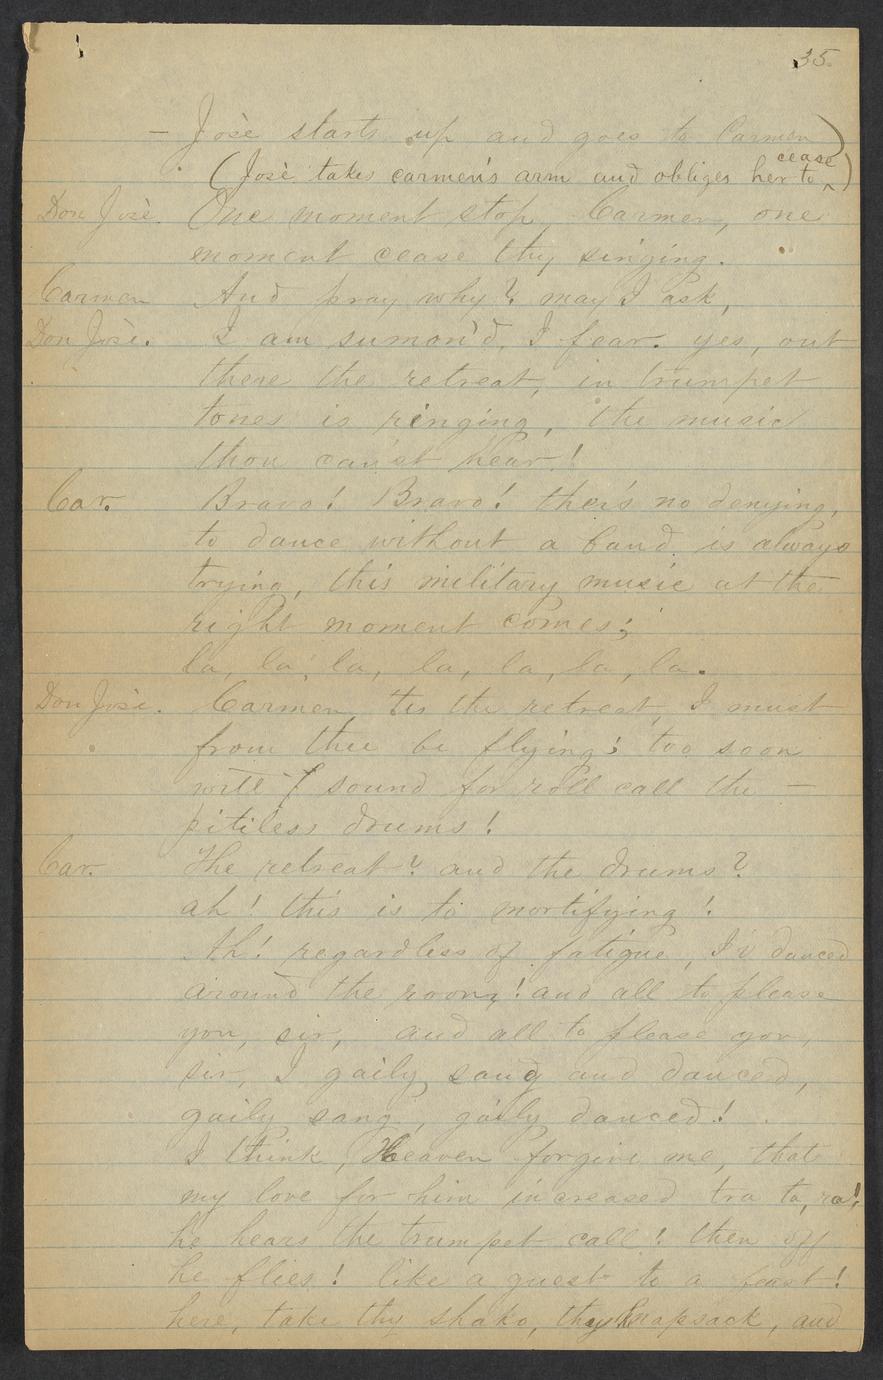 35.
— Josè starts up and goes to Carmen)
(Josè takes carmen's arm and obliges her to ^cease)
Don Josè. One moment stop, Carmen, one
moment cease thy singing.
Carmen And pray why? may I ask,
Don Josè. I am sumon'd, I fear. yes, out
there the retreat, in trumpet
tones is ringing, the music
thou can'st hear!
Car. Bravo! Bravo! ther's no denying,
to dance without a band is always
trying, this military music at the
right moment comes;
la, la, la, la, la, la, la.
Don Josè. Carmen 'tis the retreat, I must
from thee be flying; too soon
will sound for roll call the —
pitiless drums!
Car. The retreat? and the drums?
ah! this is to mortifying!
Ah! regardless of fatigue, I'v danced
around the room,! and all to please
you, sir, and all to please you,
sir, I gaily sang and danced,
gaily sang, gaily danced!
I think, Heaven forgive me, that
my love for him increased tra ta, ra!
he hears the trumpet call! then off
he flies! like a guest to a feast!
here, take thy shako, thy knapsack, and